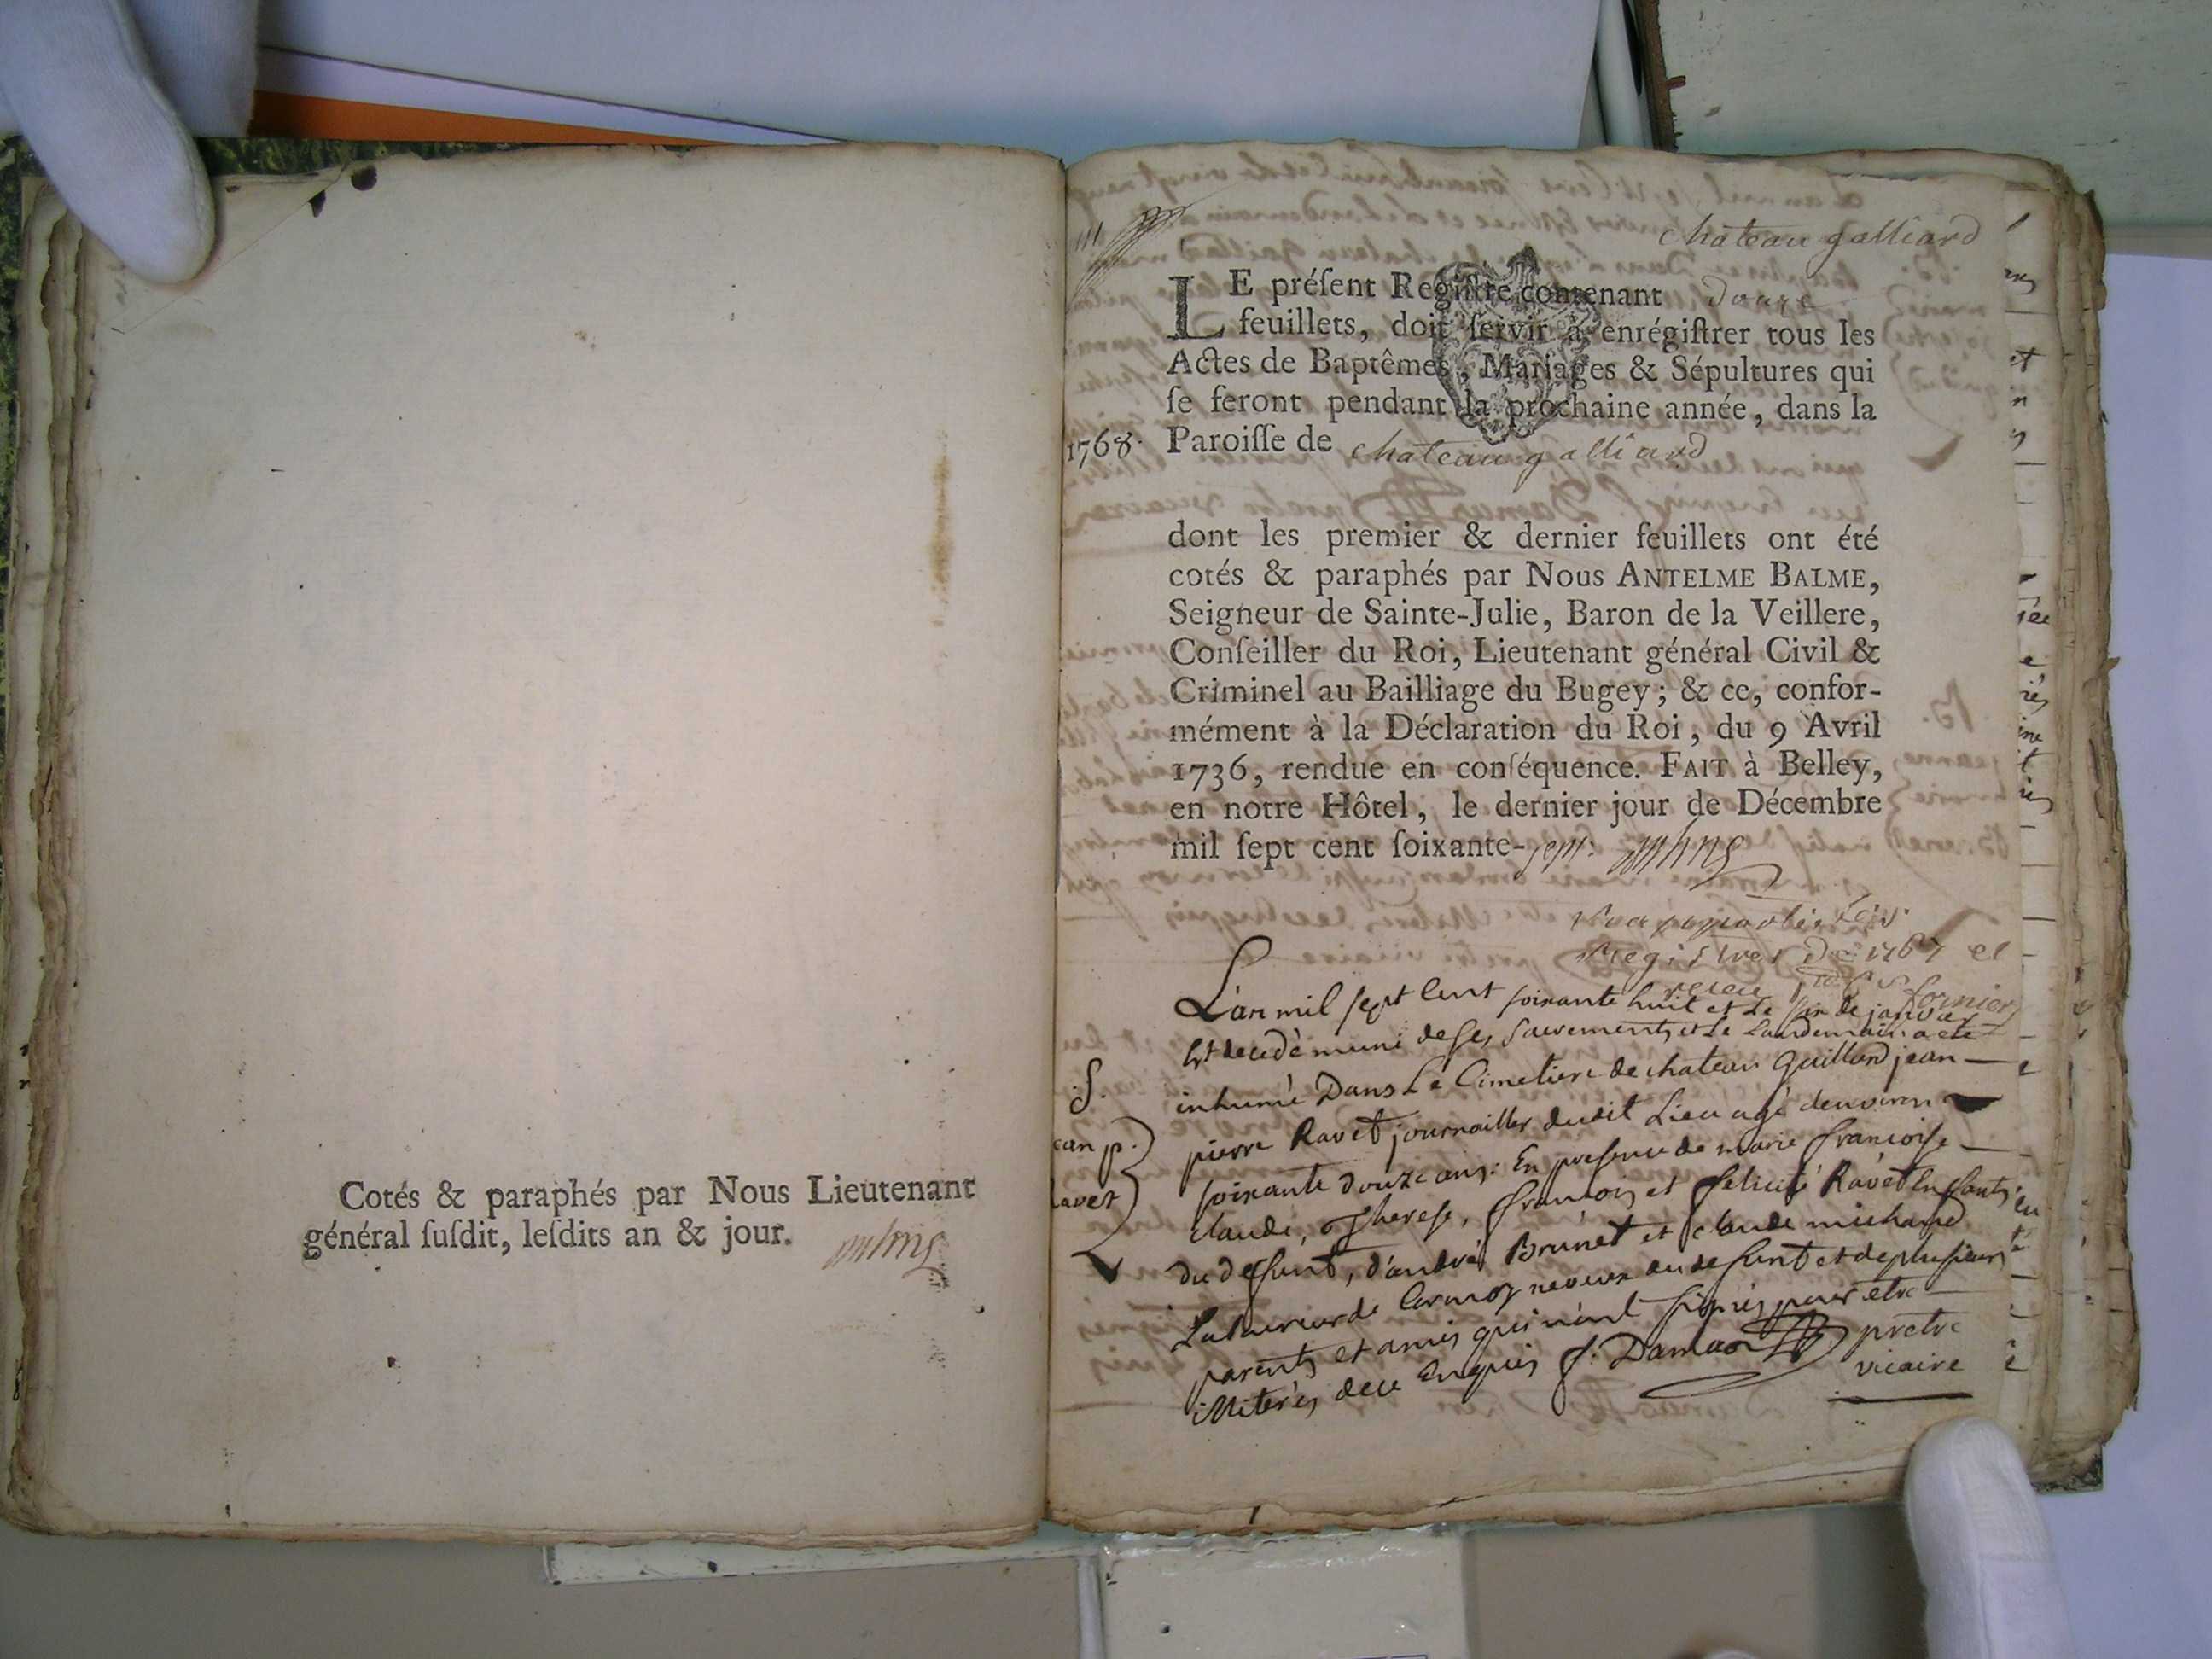 Cotés & paraphés par Nous Lieutenant
général ſuſdit, leſdits an & jour.
chateau galliard
LE préſent Regiſtre contenant douze
feuillets, doit ſervir à enrégiſtrer tous les
Actes de Baptêmes, Mariages & Sépultures qui
ſe feront pendant la prochaine année, dans la
1768. Paroiſſe de chateau galliard
dont les premier & dernier feuillets ont été
cotés & paraphés par Nous ANTELME BALME,
Seigneur de Sainte-Julie, Baron de la Veillere,
Conſeiller du Roi, Lieutenant général Civil &
Criminel au Bailliage du Bugey; & ce, confor-
mément à la Déclaration du Roi, du 9 Avril
1736, rendue en conſéquence. FAIT à Belley,
en notre Hôtel, le dernier jour de Décembre
mil ſept cent ſoixante-sept.
Registres de 1767 et
L'an mil sept Cent soixante huit et Le six de janvier
Est decedé muni de ses sacrements et Le Landemain a eté
S. inhumé Dans Le Cimetiere de chateau Gaillard jean
ean p. pierre Ravet journaillier dudit Lieu agé denviron
Ravet soixante douze ans: En presence de marie francoise
claude, Therese, francois et felicité Ravet Enfants
du defunt, d'andré Brunet et claude michaud
Laboureur de Cormoz neveux du defunt et de plusieurs
parents et amis qui n'ont signés pour etre
illiterés de ce Enquis f. Damaon pretre
vicaire